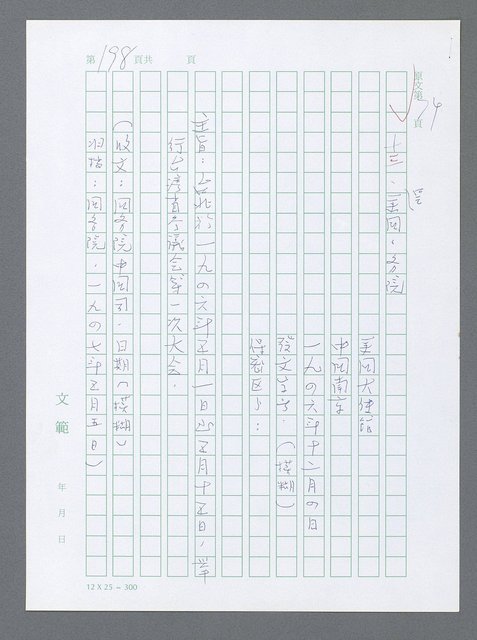 第198頁共 頁
原文第34頁
十三、美國國務院
美國大使館
中國南京
一九四六年十二月四日
發文字号：(模糊)
保密区分：
主旨：台北於一九四六年五月一日至五月十五日，举
行台灣省參議会第一次大会。
(收文：國務院中國司．日期(模糊)
归檔：國務院．一九四七年五月五日)
文範
年月日
12 X 25 = 300